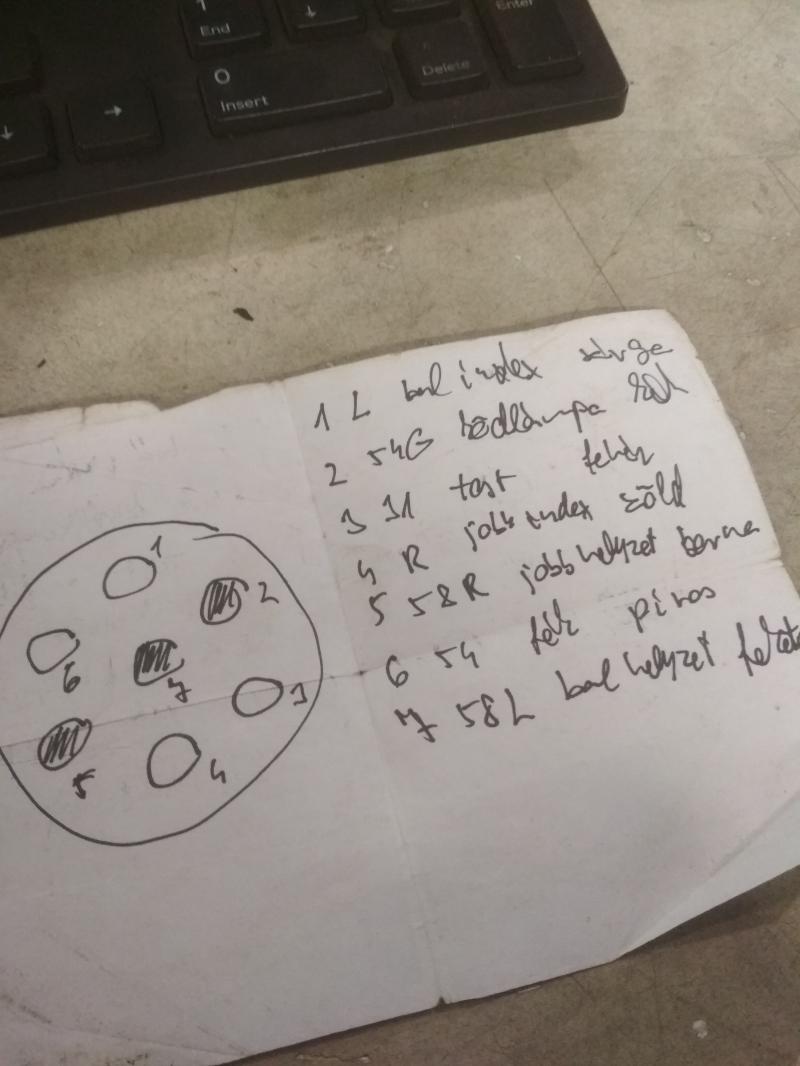 1
End
↓
Enter
0
Insert
Delete
↓
→
1 L bal index sárga
2 54G ködlámpa kék
3 31 test fehér
4 R jobb index zöld
5 58R jobb helyzet barna
6 54 fék piros
7 58L bal helyzet fekete
1
2
6
7
3
5
4